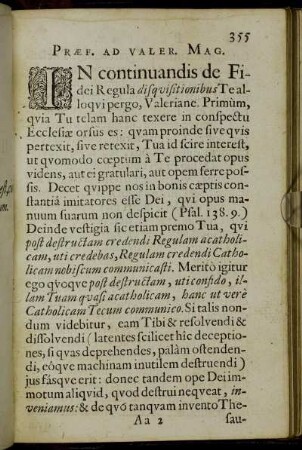 355
PRÆF. AD VALER. MAG.
IN continuandis de Fi-
dei Regula disqvisitionibus Te al-
loqvi pergo, Valeriane. Primùm,
qvia Tu telam hanc texere in conspectu
Ecclesiæ orsus es: qvam proinde sive qvis
pertexit, sive retexit, Tua id scire interest,
ut qvomodo cœptum à Te procedat opus
videns, aut ei gratulari, aut opem ferre pos-
sis. Decet qvippe nos in bonis cœptis con-
stantiâ imitatores esse Dei, qvi opus ma-
nuum suarum non despicit (Psal. 138. 9.)
Deinde vestigia sic etiam premo Tua, qvi
post destructam credendi Regulam acatholi-
cam, uti credebas, Regulam credendi Catho-
licam nobiscum communicasti. Meritò igitur
ego qvoqve post destructam, uti confido, il-
lam Tuam qvasi acatholicam, hanc ut verè
Catholicam Tecum communico. Si talis non-
dum videbitur, eam Tibi & resolvendi &
dissolvendi (latentes scilicet hîc deceptio-
nes, si qvas deprehendes, palàm ostenden-
di, eôqve machinam inutilem destruendi)
jus fásqve erit: donec tandem ope Dei im-
motum aliqvid, qvod destrui neqveat, in-
veniamus: & de qvô tanqvam invento The-
Aa 2
sau-